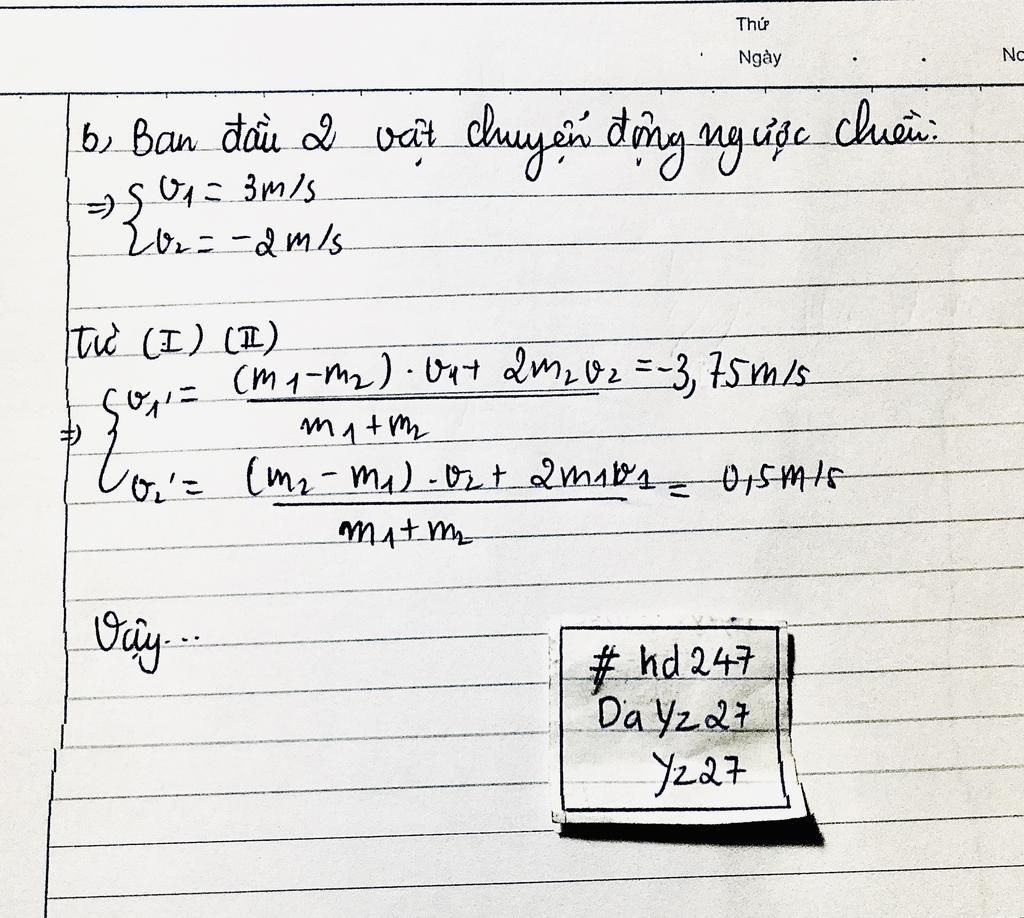 Thứ
Ngày
No
b, Ban đầu 2 vật chuyển động ngược chiều:
=> { v1 = 3m/s
v2 = -2m/s
Từ (I) (II)
=> { v1' = (m1-m2).v1+ 2m2v2 / m1+m2 = -3,75m/s
v2' = (m2-m1).v2+ 2m1v1 / m1+m2 = 0,5m/s
Vậy...
# hd247
Da Yz27
Yz27